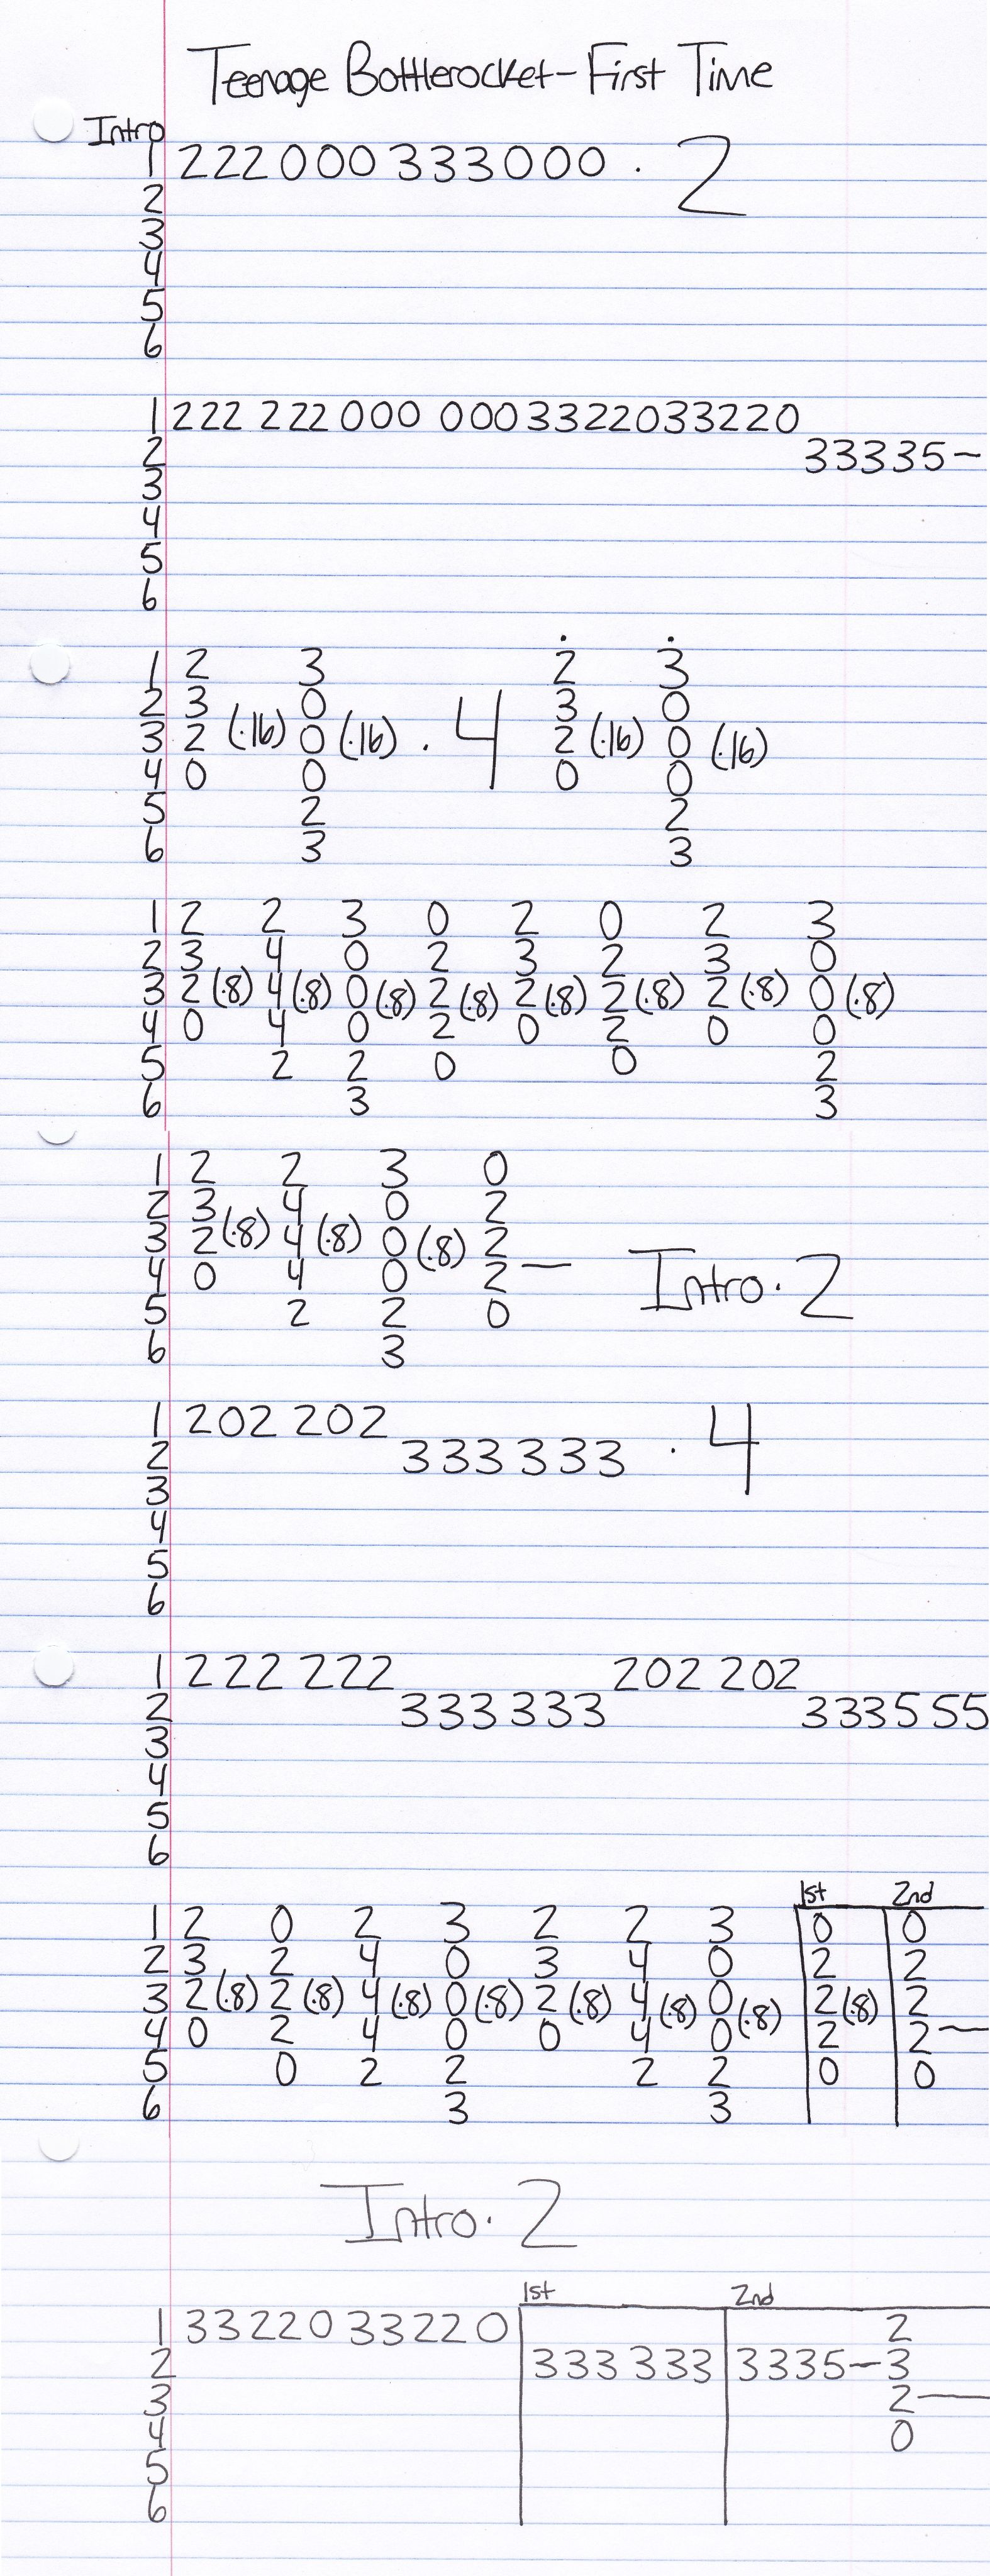 Teenage Bottlerocket - First Time
Intro
1 222 000 333 000 · 2
2
3
4
5
6
1 222 222 000 000 3322033220
2 33335~
3
4
5
6
1 2 3 2 3
2 3 0 3 0
3 2 (·16) 0 (·16) · 4 2 (·16) 0 (·16)
4 0 0 0 0
5 2 2
6 3 3
1 2 2 3 0 2 0 2 3
2 3 4 0 2 3 2 3 0
3 2 (·8) 4 (·8) 0 (·8) 2 (·8) 2 (·8) 2 (·8) 2 (·8) 0 (·8)
4 0 4 0 2 0 2 0 0
5 2 2 0 0 2
6 3 3
1 2 2 3 0
2 3 4 0 2
3 2 (·8) 4 (·8) 0 (·8) 2
4 0 4 0 2 — Intro · 2
5 2 2 0
6 3
1 202 202
2 333 333 · 4
3
4
5
6
1 222 222 202 202
2 333 333 333555
3
4
5
6
1st 2nd
1 2 0 2 3 2 2 3 0 0
2 3 2 4 0 3 4 0 2 2
3 2 (·8) 2 (·8) 4 (·8) 0 (·8) 2 (·8) 4 (·8) 0 (·8) 2 (·8) 2
4 0 2 4 0 0 4 0 2 2 —
5 0 2 2 2 2 0 0
6 3 3
Intro · 2
1st 2nd
1 33220 33220 2
2 333 333 3335—3
3 2 —
4 0
5
6